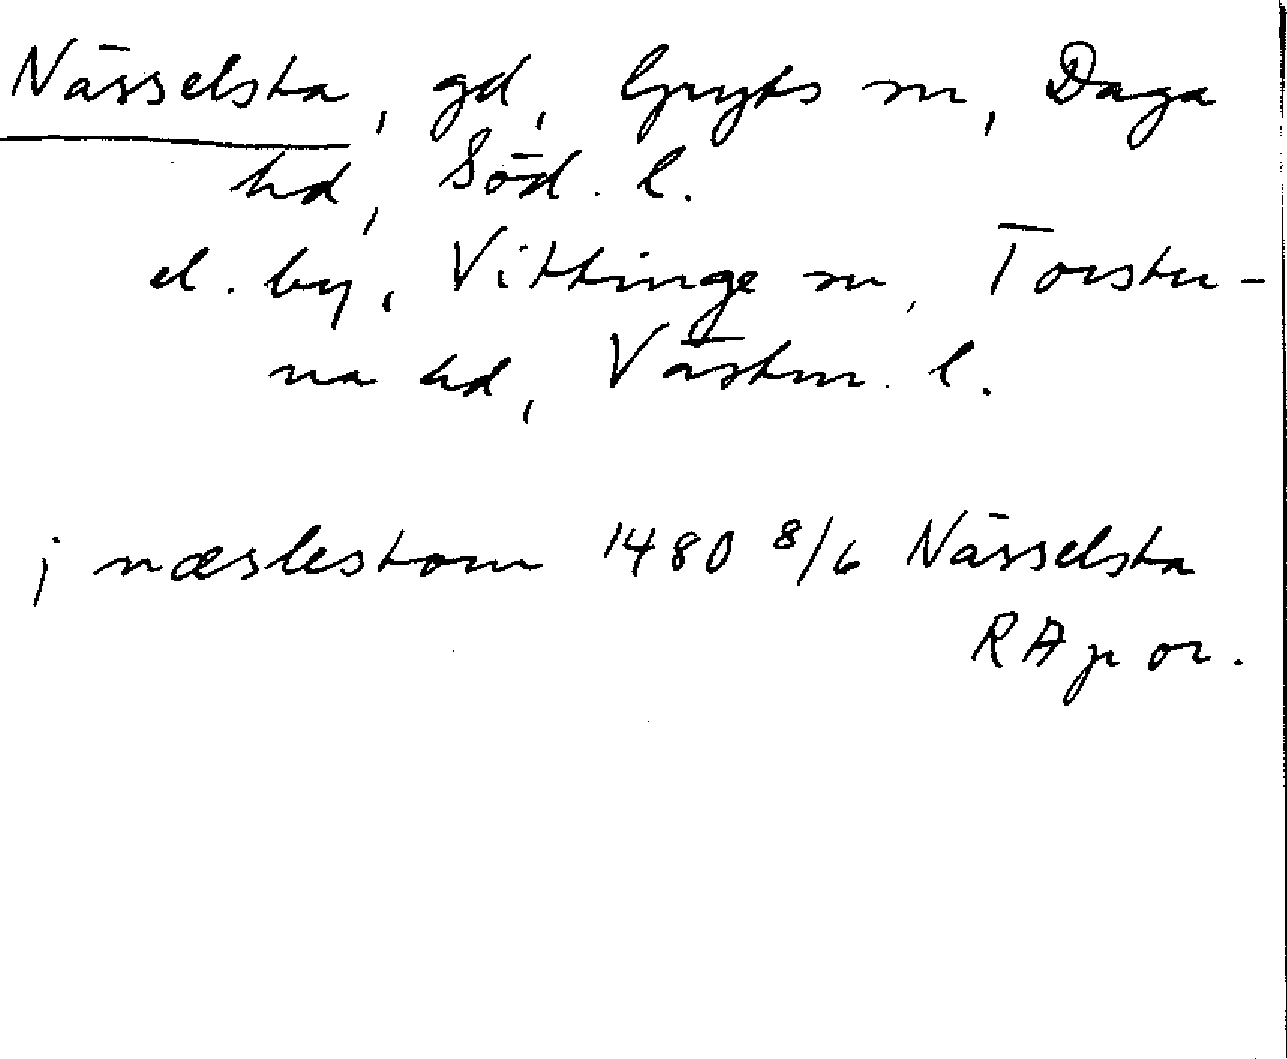 Nässelsta, gd, Gryts sn, Daga
hd, Söd. l.
el. by, Vittinge sn, Torstu-
na hd, Västm. l.
j næslestom 1480 8/6 Nässelsta
RAp or.